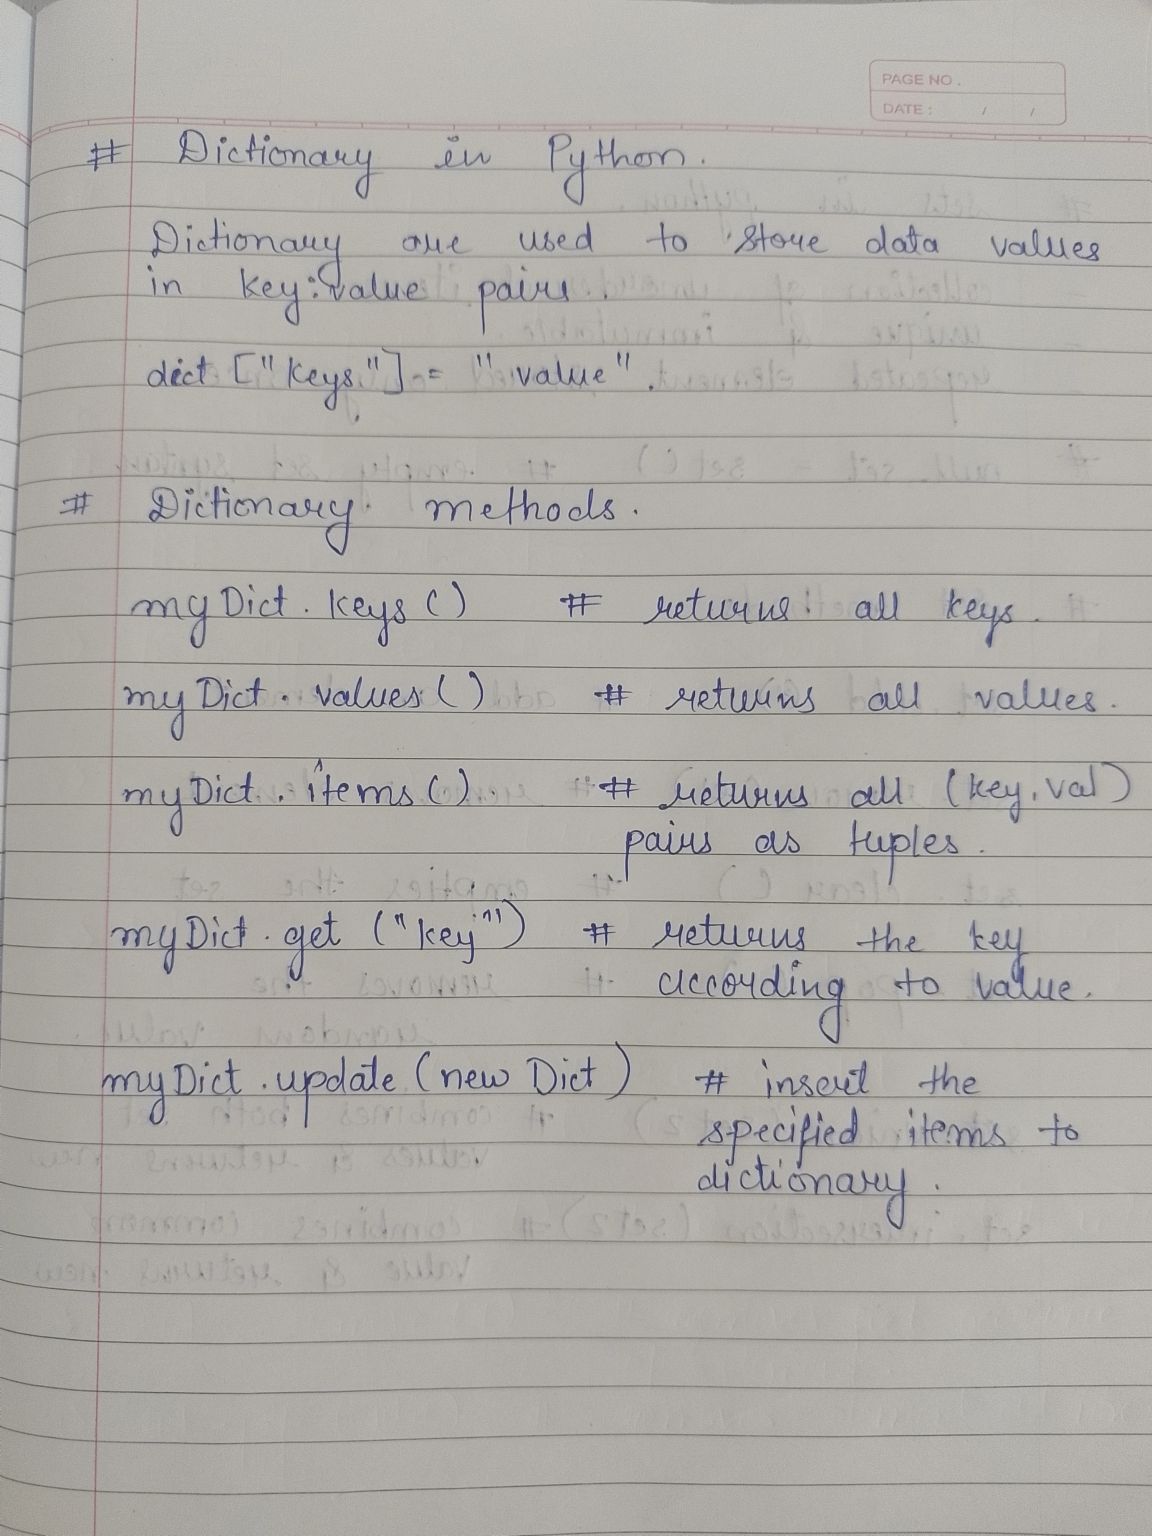 PAGE NO.
DATE: / /
# Dictionary in Python.
Dictionary are used to store data values
in key:value pairs.
dict ["keys"] = "value".
# Dictionary methods.
myDict. keys () # returns all keys.
myDict. values () # returns all values.
myDict. items () # returns all (key, val)
pairs as tuples.
myDict. get ("key") # returns the key
according to value.
myDict. update (new Dict) # insert the
specified items to
dictionary.